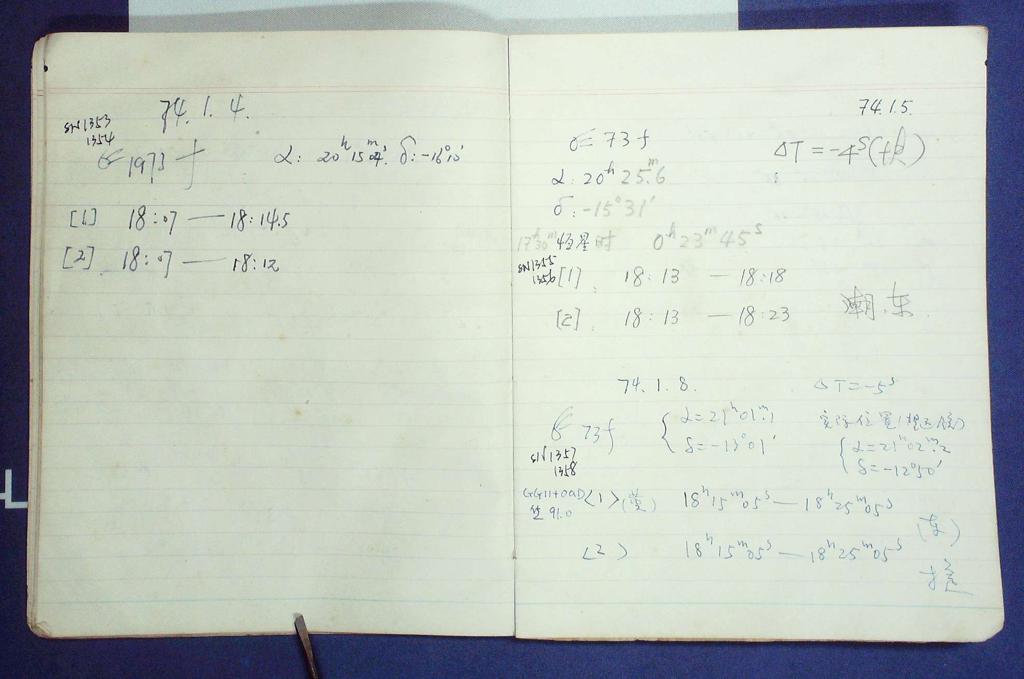 74.1.4.
SN1353
1354
1973f α: 20ʰ15ᵐ04ˢ. δ: -16°10′
[1] 18:07 — 18:14.5
[2] 18:07 — 18:12
74.1.5.
73f ΔT=-4ˢ
α: 20ʰ25ᵐ.6
δ: -15°31′
17ʰ30ᵐ恒星时 0ʰ23ᵐ45ˢ
SN1355
1356 [1] 18:13 — 18:18
[2] 18:13 — 18:23
74.1.8. ΔT=-5ˢ
73f { α=21ʰ01ᵐ.1 实际位置(望远镜)
δ=-13°01′ { α=21ʰ02ᵐ.2
δ=-12°50′
SN1357
1358
GG11+OaD <1> (黄) 18ʰ15ᵐ05ˢ — 18ʰ25ᵐ05ˢ
91.0
<2> 18ʰ15ᵐ05ˢ — 18ʰ25ᵐ05ˢ
(东)